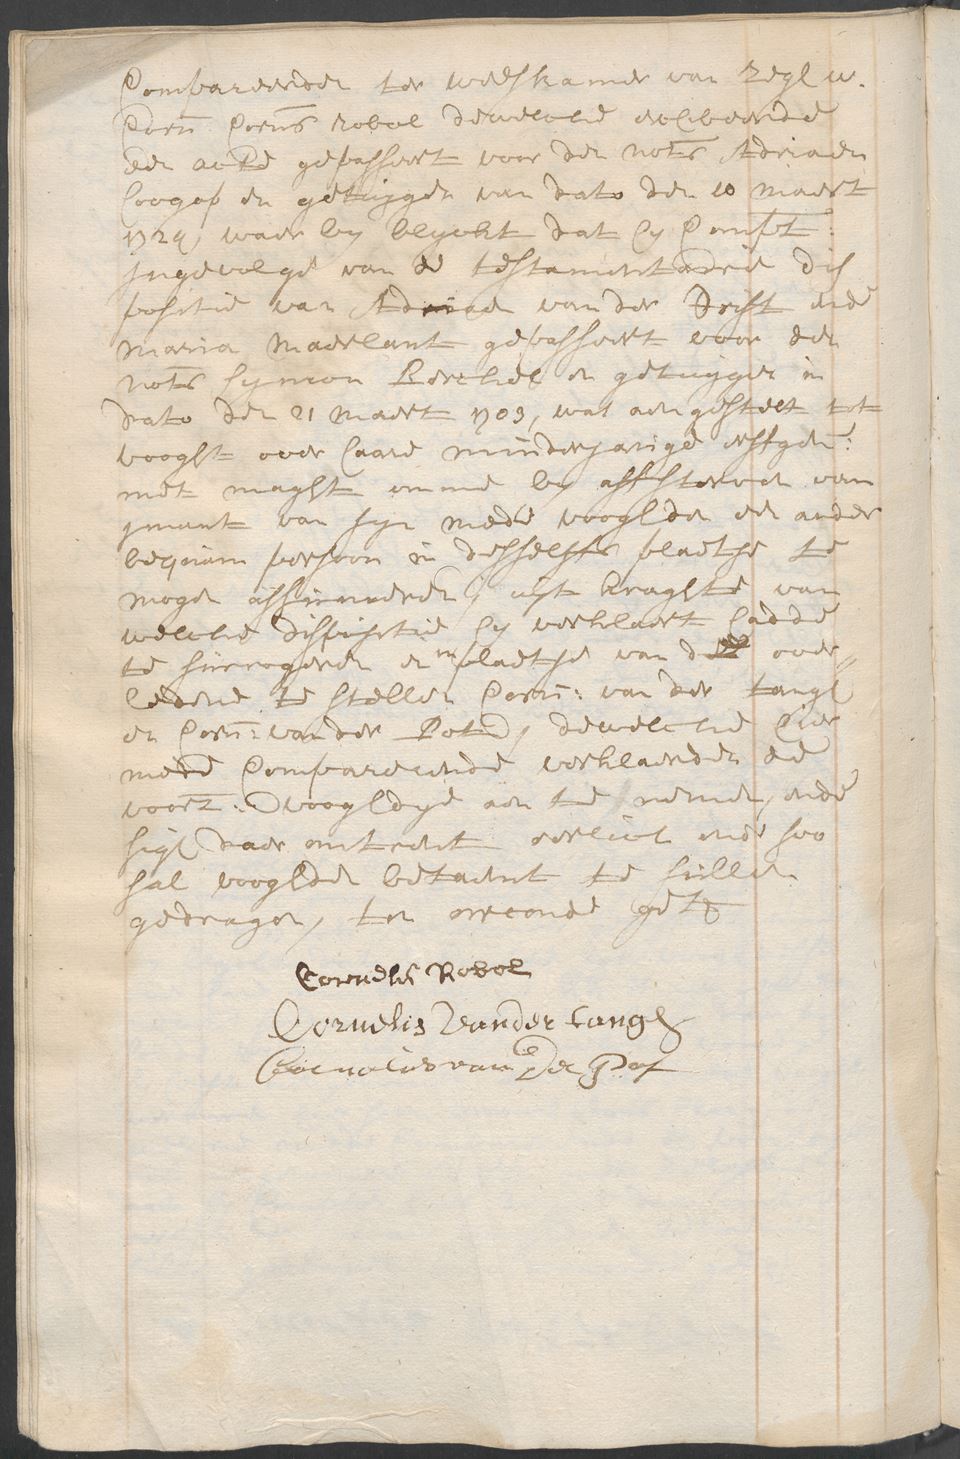 Compareerden ter weeskamer van Regl w.
Corn: Corns Robol dewelcke exhibeerde
een acte gepasseert voor den nots Adriaen
Coogap en getuygen van dato den 10 maert
1724, waer by blyckt dat hy Compt:
ingevolge van de testamentairie dis
positie van Adriaen van der Drift ende
Maria Maerlant gepasseert voor den
nots Symon Berchel en getuygen in
dato den 21 maert 1703, was aengestelt tot
vooght over haere minderjarige erffgen:
met maght omme by affsterven van
ymant van syn mede vooghden een ander
bequaem persoon in desselffs plaetse te
mogen assumeren, uyt kraghte van
welcke dispositie hy verklaert hadde
te surrogeren en in plaetse van de over„
ledene te stellen Corn: van der Langh
en Corn: van der Pot, dewelcke hier
mede Compareerende verklaerden de
voorn: vooghdye aen te nemen, ende
sigh daer omtrent eerlick ende soo
sal vooghden betaemt te sullen
gedragen, ten oirconde get
Cornelis Robol
Cornelis Vander Langh
Cornelis van der Pot